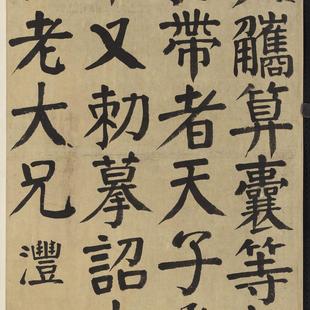 觿算囊等
帶者天子
又勅摹詔
老大兄灃